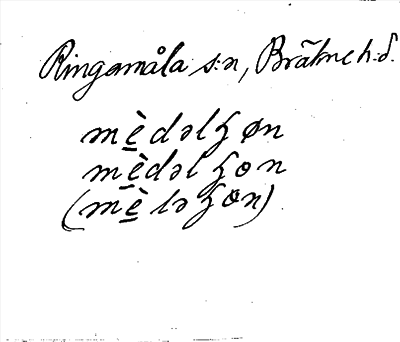 Ringamåla s:n, Bräkne h:d.
mè̱dəlɧøn
mè̱dəlɧon
(mè̱ləɧɵn)